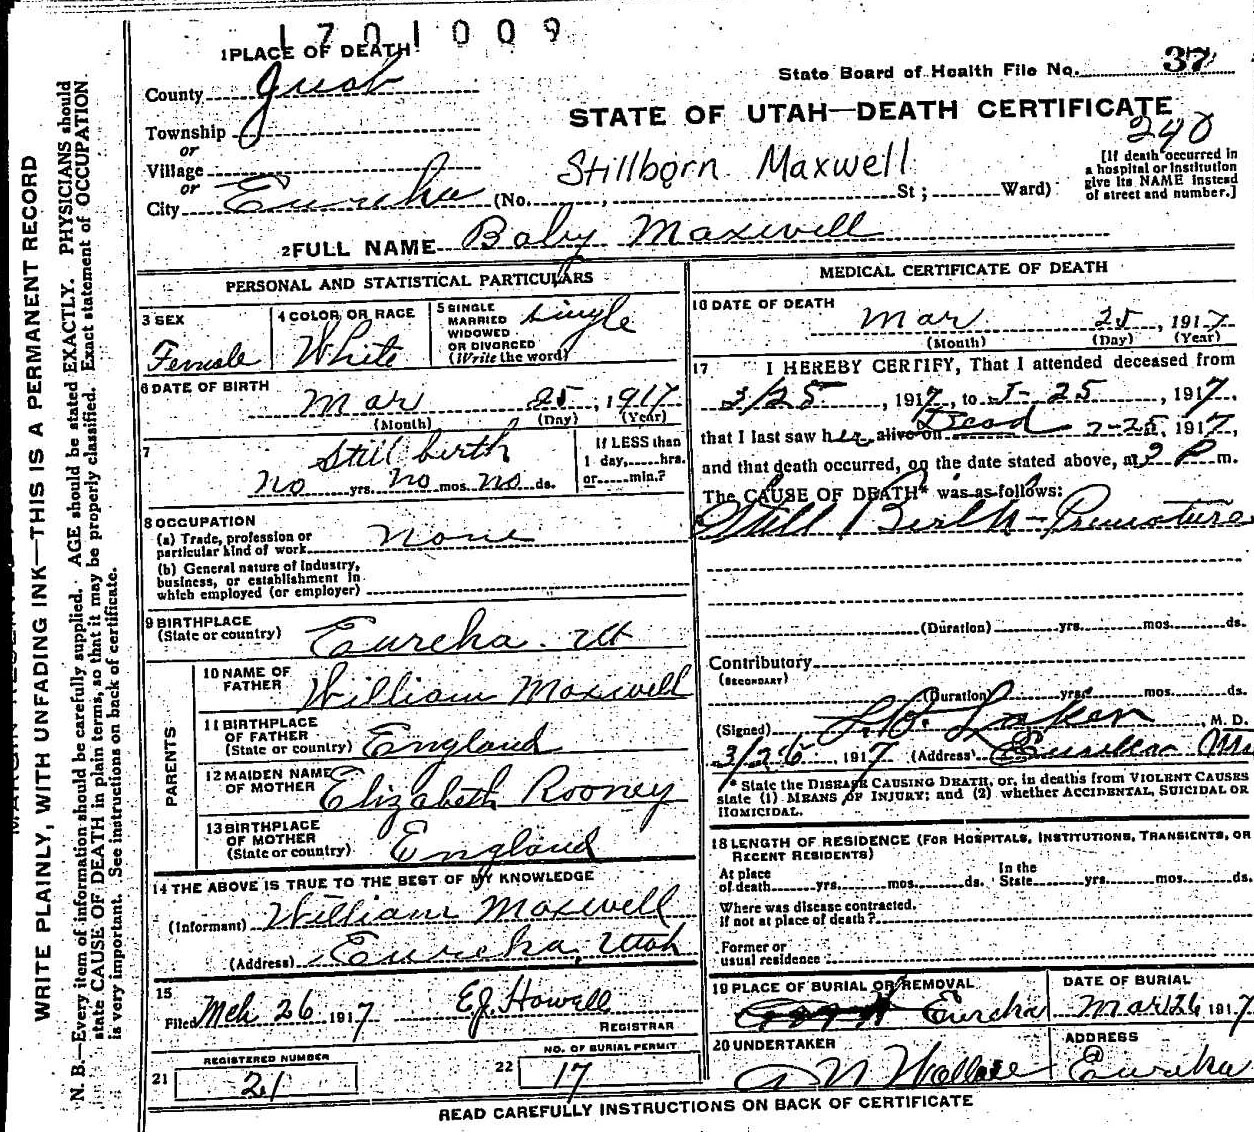 1701009
1 PLACE OF DEATH
State Board of Health File No. 37
County Juab
STATE OF UTAH—DEATH CERTIFICATE
240
Township
or
Village
or
City Eureka (No. , St ; Ward)
Stillborn Maxwell
[If death occurred in
a hospital or institution
give its NAME instead
of street and number.]
2 FULL NAME Baby Maxwell
PERSONAL AND STATISTICAL PARTICULARS
3 SEX
Female
4 COLOR OR RACE
White
5 SINGLE
MARRIED
WIDOWED
OR DIVORCED
(Write the word)
single
6 DATE OF BIRTH
Mar 25, 1917
(Month) (Day) (Year)
7
Still birth
no yrs. no mos. no ds.
If LESS than
1 day, hrs.
or min.?
8 OCCUPATION
(a) Trade, profession or
particular kind of work none
(b) General nature of industry,
business, or establishment in
which employed (or employer)
9 BIRTHPLACE
(State or country) Eureka. Ut
PARENTS
10 NAME OF
FATHER William Maxwell
11 BIRTHPLACE
OF FATHER
(State or country) England
12 MAIDEN NAME
OF MOTHER Elizabeth Rooney
13 BIRTHPLACE
OF MOTHER
(State or country) England
14 THE ABOVE IS TRUE TO THE BEST OF MY KNOWLEDGE
(Informant) William Maxwell
(Address) Eureka, Utah
15
Filed Mch 26 1917 EJ. Howell
REGISTRAR
REGISTERED NUMBER
21 21
NO. OF BURIAL PERMIT
22 17
MEDICAL CERTIFICATE OF DEATH
16 DATE OF DEATH
Mar 25, 1917
(Month) (Day) (Year)
17 I HEREBY CERTIFY, That I attended deceased from
3/25, 1917, to 25, 1917.
that I last saw her alive on Dead 25, 1917,
and that death occurred, on the date stated above, at P m.
The CAUSE OF DEATH* was as follows:
Still Birth - Premature
(Duration) yrs. mos. ds.
Contributory
(SECONDARY)
(Duration) yrs. mos. ds.
(Signed) Laker, M. D.
3/26, 1917 (Address) Eureka
* State the DISEASE CAUSING DEATH, or, in deaths from VIOLENT CAUSES
state (1) MEANS OF INJURY; and (2) whether ACCIDENTAL, SUICIDAL OR
HOMICIDAL.
18 LENGTH OF RESIDENCE (FOR HOSPITALS, INSTITUTIONS, TRANSIENTS, OR
RECENT RESIDENTS)
At place
of death yrs. mos. ds.
In the
State yrs. mos. ds.
Where was disease contracted,
if not at place of death?
Former or
usual residence
19 PLACE OF BURIAL OR REMOVAL
Eureka
DATE OF BURIAL
Mar 26 1917
20 UNDERTAKER
Wallace
ADDRESS
Eureka
READ CAREFULLY INSTRUCTIONS ON BACK OF CERTIFICATE
WRITE PLAINLY, WITH UNFADING INK—THIS IS A PERMANENT RECORD
N. B.—Every item of information should be carefully supplied. AGE should be stated EXACTLY. PHYSICIANS should
state CAUSE OF DEATH in plain terms, so that it may be properly classified. Exact statement of OCCUPATION
is very important. See instructions on back of certificate.